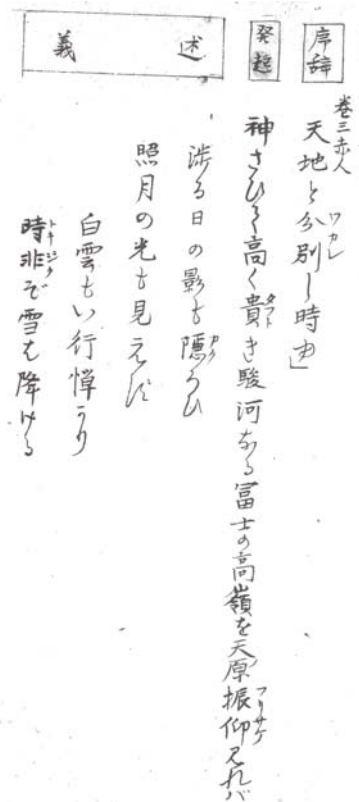 序辞
発起
述義
巻三赤人
天地と分別し時由」
神さひて高く貴き駿河なる冨士の高嶺を天原振仰見れバ
渉る日の影も隠ろひ
照月の光も見えす
白雲もい行憚り
時非ぞ雪は降ける